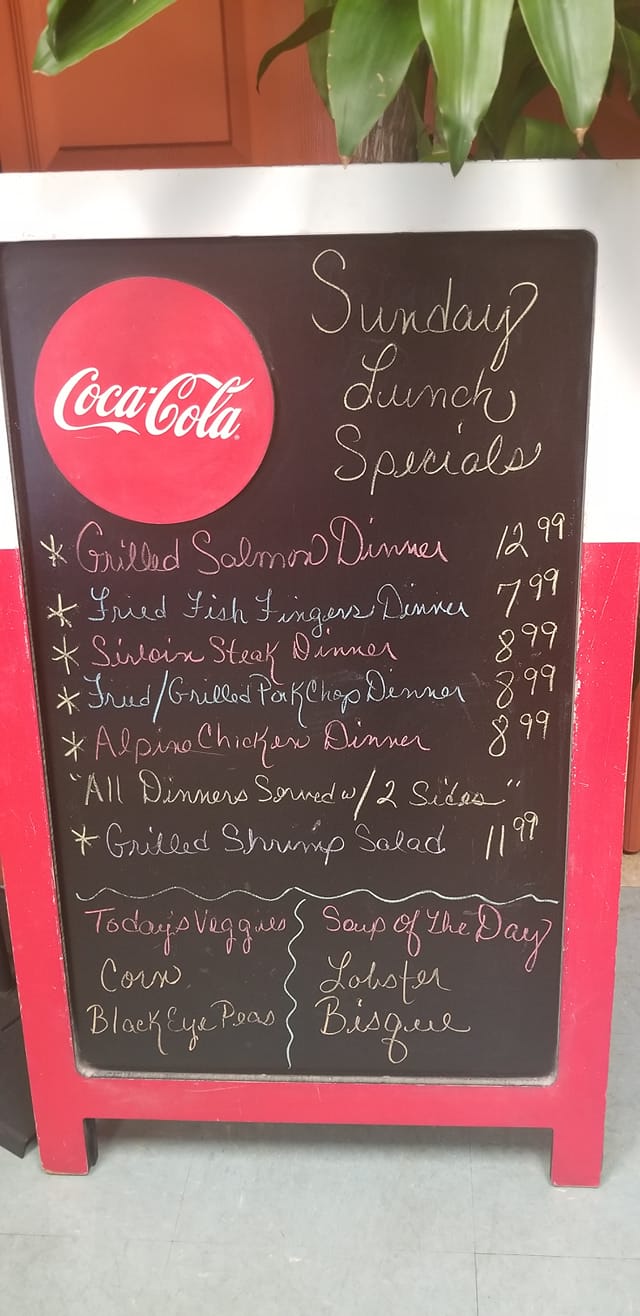 Coca-Cola
Sunday
Lunch
Specials
* Grilled Salmon Dinner 12 99
* Fried Fish Fingers Dinner 7 99
* Sirloin Steak Dinner 8 99
* Fried/Grilled Pork Chop Dinner 8 99
* Alpine Chicken Dinner 8 99
"All Dinners Served w/2 Sides"
* Grilled Shrimp Salad 11 99
Today's Veggies
Corn
Black Eye Peas
Soup Of The Day
Lobster
Bisque